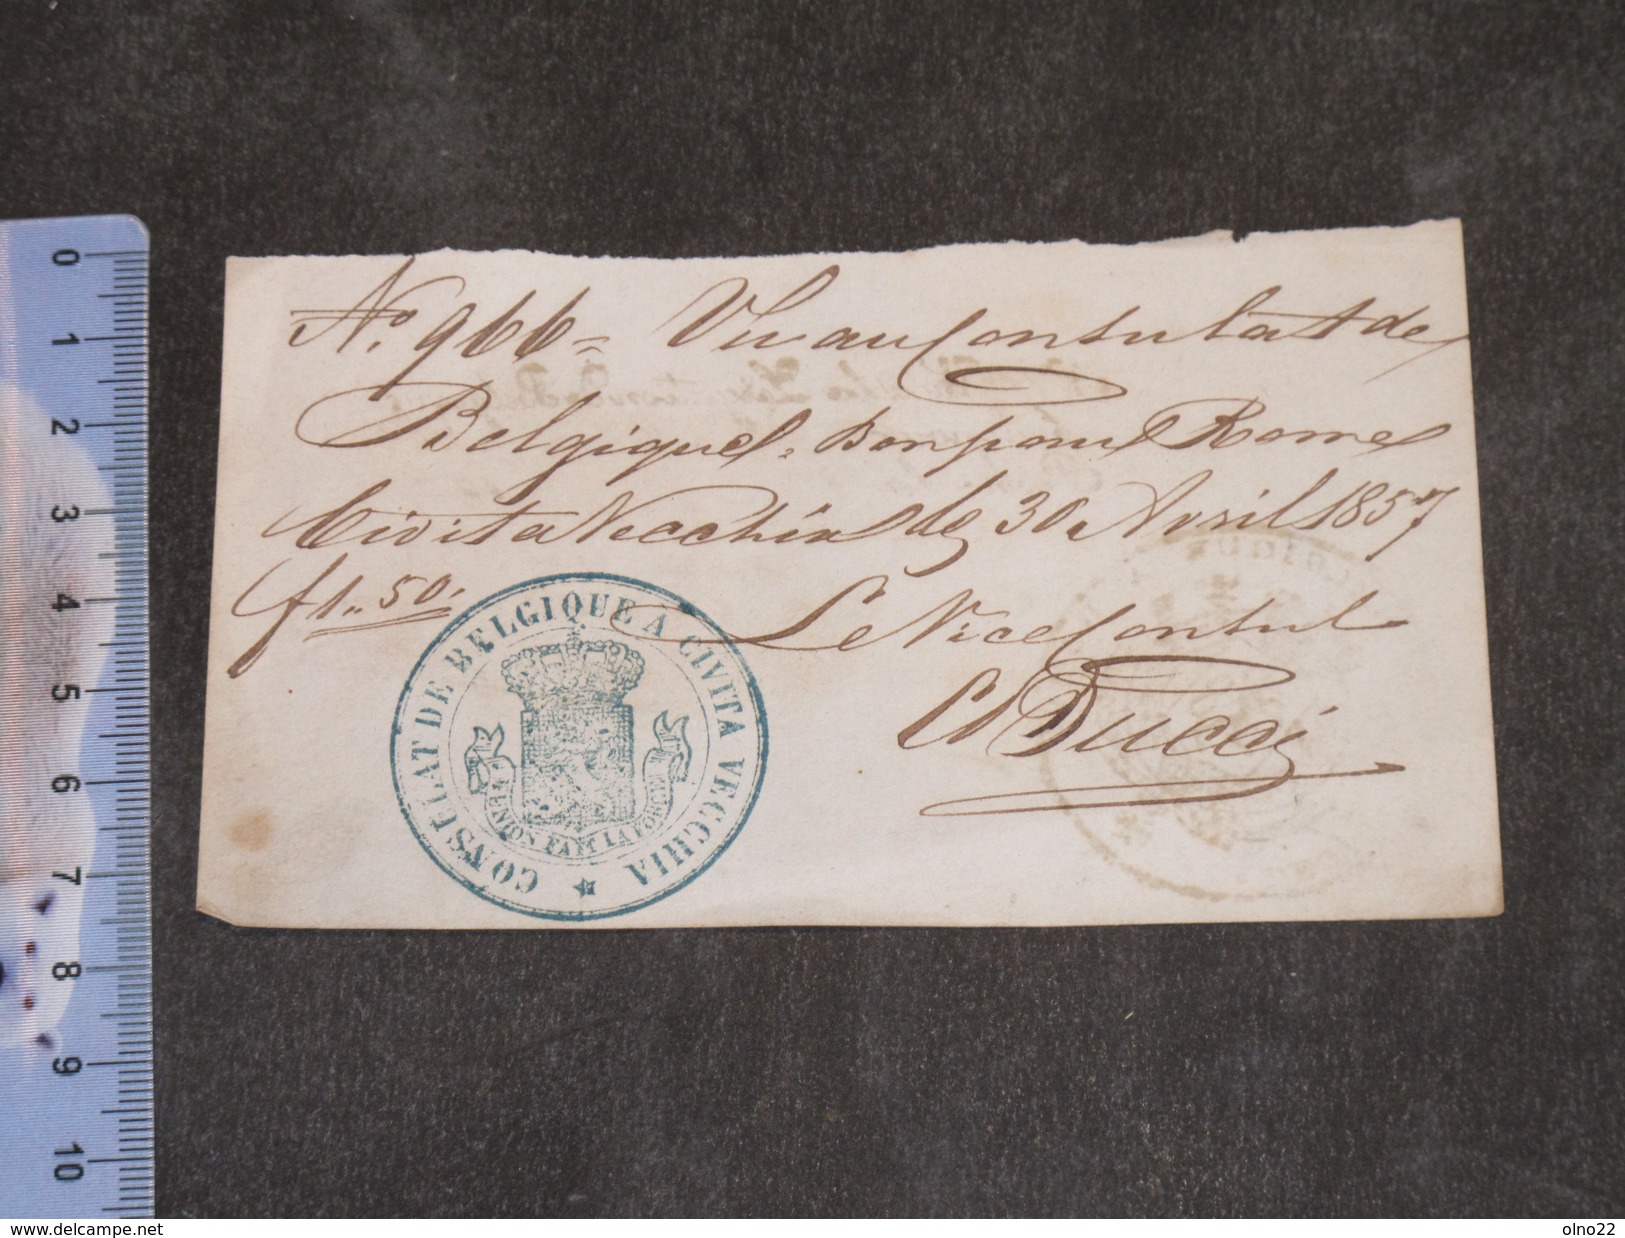 No. 966 = Vu au Consulat de
Belgique. Bon pour Rome
Civita Vecchia le 30 Avril 1857
f 1.. 50.
Le Vice Consul
Ducci
CONSULAT DE BELGIQUE A CIVITA VECCHIA
L'UNION FAIT LA FORCE
0
1
2
3
4
5
6
7
8
9
10
www.delcampe.net
olno22